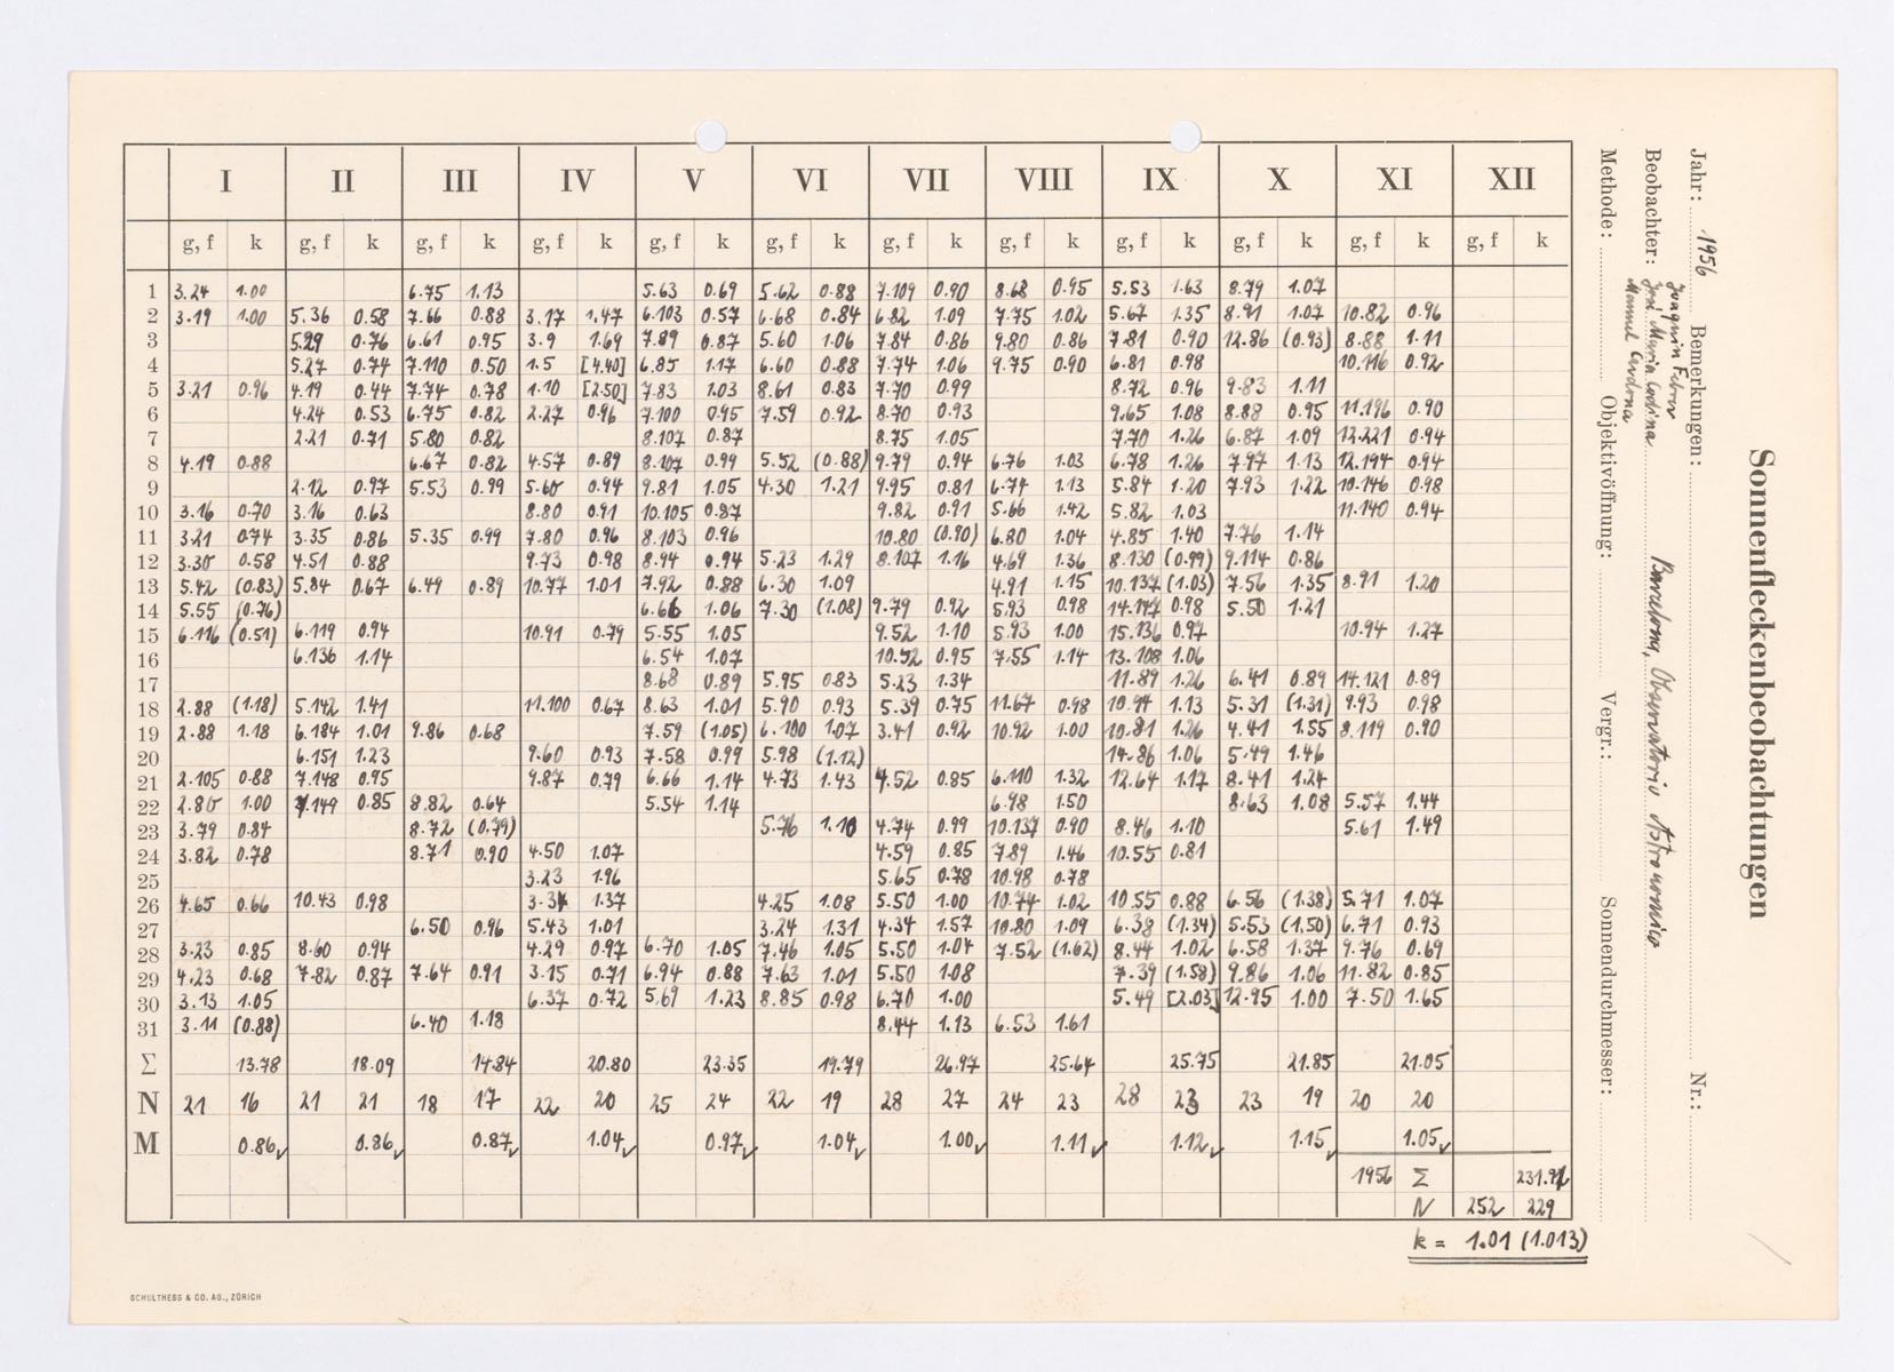 I II III IV V VI VII VIII IX X XI XII
g, f k g, f k g, f k g, f k g, f k g, f k g, f k g, f k g, f k g, f k g, f k g, f k
1 3.24 1.00 6.75 1.13 5.63 0.69 5.62 0.88 7.109 0.90 8.68 0.95 5.53 1.63 8.79 1.07
2 3.19 1.00 5.36 0.58 7.66 0.88 3.17 1.47 6.103 0.57 6.68 0.84 6.82 1.09 7.75 1.02 5.67 1.35 8.91 1.07 10.82 0.96
3 5.29 0.76 6.61 0.95 3.9 1.69 7.89 0.87 5.60 1.06 7.84 0.86 9.80 0.86 7.81 0.90 12.86 (0.93) 8.88 1.11
4 5.27 0.74 7.110 0.50 1.5 [4.40] 6.85 1.17 6.60 0.88 7.74 1.06 9.75 0.90 6.81 0.98 10.116 0.92
5 3.21 0.96 4.19 0.44 7.74 0.78 1.10 [2.50] 7.83 1.03 8.61 0.83 7.70 0.99 8.72 0.96 9.83 1.11
6 4.24 0.53 6.75 0.82 2.27 0.96 7.100 0.95 7.59 0.92 8.70 0.93 9.65 1.08 8.88 0.95 11.196 0.90
7 2.21 0.71 5.80 0.82 8.107 0.87 8.75 1.05 7.70 1.26 6.87 1.09 12.221 0.94
8 4.19 0.88 6.67 0.82 4.57 0.89 8.107 0.99 5.52 (0.88) 9.79 0.94 6.76 1.03 6.78 1.26 7.97 1.13 12.194 0.94
9 2.12 0.97 5.53 0.99 5.60 0.94 9.81 1.05 4.30 1.21 9.95 0.81 6.74 1.13 5.84 1.20 7.93 1.22 10.146 0.98
10 3.16 0.70 3.16 0.63 8.80 0.91 10.105 0.87 9.82 0.91 5.66 1.42 5.82 1.03 11.140 0.94
11 3.21 0.74 3.35 0.86 5.35 0.99 7.80 0.96 8.103 0.96 10.80 (0.90) 6.80 1.04 4.85 1.40 7.76 1.14
12 3.30 0.58 4.51 0.88 9.73 0.98 8.94 0.94 5.23 1.29 8.107 1.16 4.69 1.36 8.130 (0.99) 9.114 0.86
13 5.42 (0.83) 5.84 0.67 6.49 0.89 10.77 1.01 7.92 0.88 6.30 1.09 4.91 1.15 10.137 (1.03) 7.56 1.35 8.91 1.20
14 5.55 (0.76) 6.66 1.06 7.30 (1.08) 9.79 0.92 5.93 0.98 14.147 0.98 5.50 1.21
15 6.116 (0.51) 6.119 0.94 10.91 0.79 5.55 1.05 9.52 1.10 5.93 1.00 15.136 0.97 10.94 1.27
16 6.136 1.14 6.54 1.07 10.52 0.95 7.55 1.14 13.108 1.06
17 8.68 0.89 5.95 0.83 5.23 1.34 11.89 1.26 6.41 0.89 14.121 0.89
18 2.88 (1.18) 5.142 1.41 11.100 0.67 8.63 1.01 5.90 0.93 5.39 0.75 11.67 0.98 10.94 1.13 5.31 (1.31) 9.93 0.98
19 2.88 1.18 6.184 1.01 9.86 0.68 7.59 (1.05) 6.100 1.07 3.41 0.92 10.92 1.00 10.81 1.26 4.41 1.55 8.119 0.90
20 6.151 1.23 9.60 0.93 7.58 0.99 5.98 (1.12) 14.86 1.06 5.49 1.46
21 2.105 0.88 7.148 0.95 9.87 0.79 6.66 1.14 4.73 1.43 4.52 0.85 6.110 1.32 12.64 1.17 8.41 1.24
22 2.80 1.00 7.149 0.85 8.82 0.64 5.54 1.14 6.98 1.50 8.63 1.08 5.57 1.44
23 3.79 0.84 8.72 (0.79) 5.76 1.10 4.74 0.99 10.137 0.90 8.46 1.10 5.61 1.49
24 3.82 0.78 8.71 0.90 4.50 1.07 4.59 0.85 7.89 1.46 10.55 0.81
25 3.23 1.96 5.65 0.78 10.98 0.78
26 4.65 0.66 10.43 0.98 3.34 1.37 4.25 1.08 5.50 1.00 10.74 1.02 10.55 0.88 6.56 (1.38) 5.71 1.07
27 6.50 0.96 5.43 1.01 3.24 1.31 4.34 1.57 10.80 1.09 6.38 (1.34) 5.53 (1.50) 6.71 0.93
28 3.23 0.85 8.60 0.94 4.29 0.97 6.70 1.05 7.46 1.05 5.50 1.04 7.52 (1.62) 8.44 1.02 6.58 1.37 9.76 0.69
29 4.23 0.68 7.82 0.87 7.64 0.91 3.15 0.71 6.94 0.88 7.63 1.01 5.50 1.08 7.39 (1.58) 9.86 1.06 11.82 0.85
30 3.13 1.05 6.37 0.72 5.61 1.23 8.85 0.98 6.70 1.00 5.49 [2.03] 12.95 1.00 7.50 1.65
31 3.11 (0.88) 6.40 1.18 8.44 1.13 6.53 1.61
Σ 13.78 18.09 14.84 20.80 23.35 19.79 26.97 25.64 25.75 21.85 21.05
N 21 16 21 21 18 17 22 20 25 24 22 19 28 27 24 23 28 23 23 19 20 20
M 0.86 0.86 0.87 1.04 0.97 1.04 1.00 1.11 1.12 1.15 1.05
1956 Σ 231.91
N 252 229
k = 1.01 (1.013)
SCHULTHESS & CO. AG., ZÜRICH
Sonnenfleckenbeobachtungen
Jahr: 1956 Bemerkungen: Nr.:
Joaquin Febrer
Beobachter: José Maria Codina Barcelona, Observatorio Astronomico
Manuel Cardona
Methode: Objektivöffnung: Vergr.: Sonnendurchmesser: